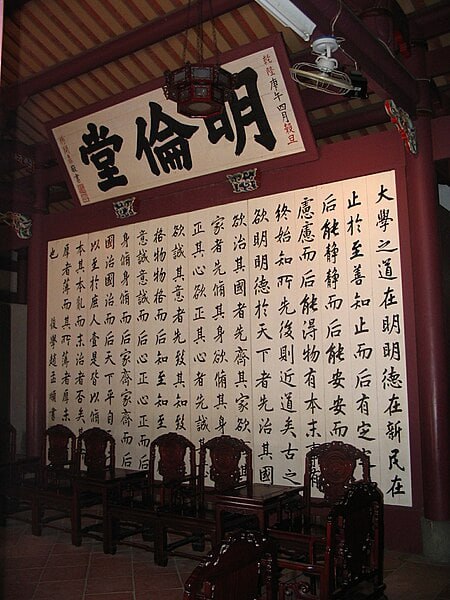 明倫堂
乾隆庚午四月穀旦
敬書
大學之道在明明德在新民在
止於至善知止而后有定
后能靜靜而后能安安而
慮慮而后能得物有本末
終始知所先後則近道矣古之
欲明明德於天下者先治其國
欲治其國者先齊其家欲
家者先脩其身欲脩其
正其心欲正其心者先誠
欲誠其意者先致其知致
格物物格而后知至知至
意誠意誠而后心正心正而后
身脩身脩而后家齊家齊而后
國治國治而后天下平自
以至於庶人壹是皆以脩
本其本亂而末治者否矣
厚者薄而其所薄者厚未
也 後學趙孟頫書